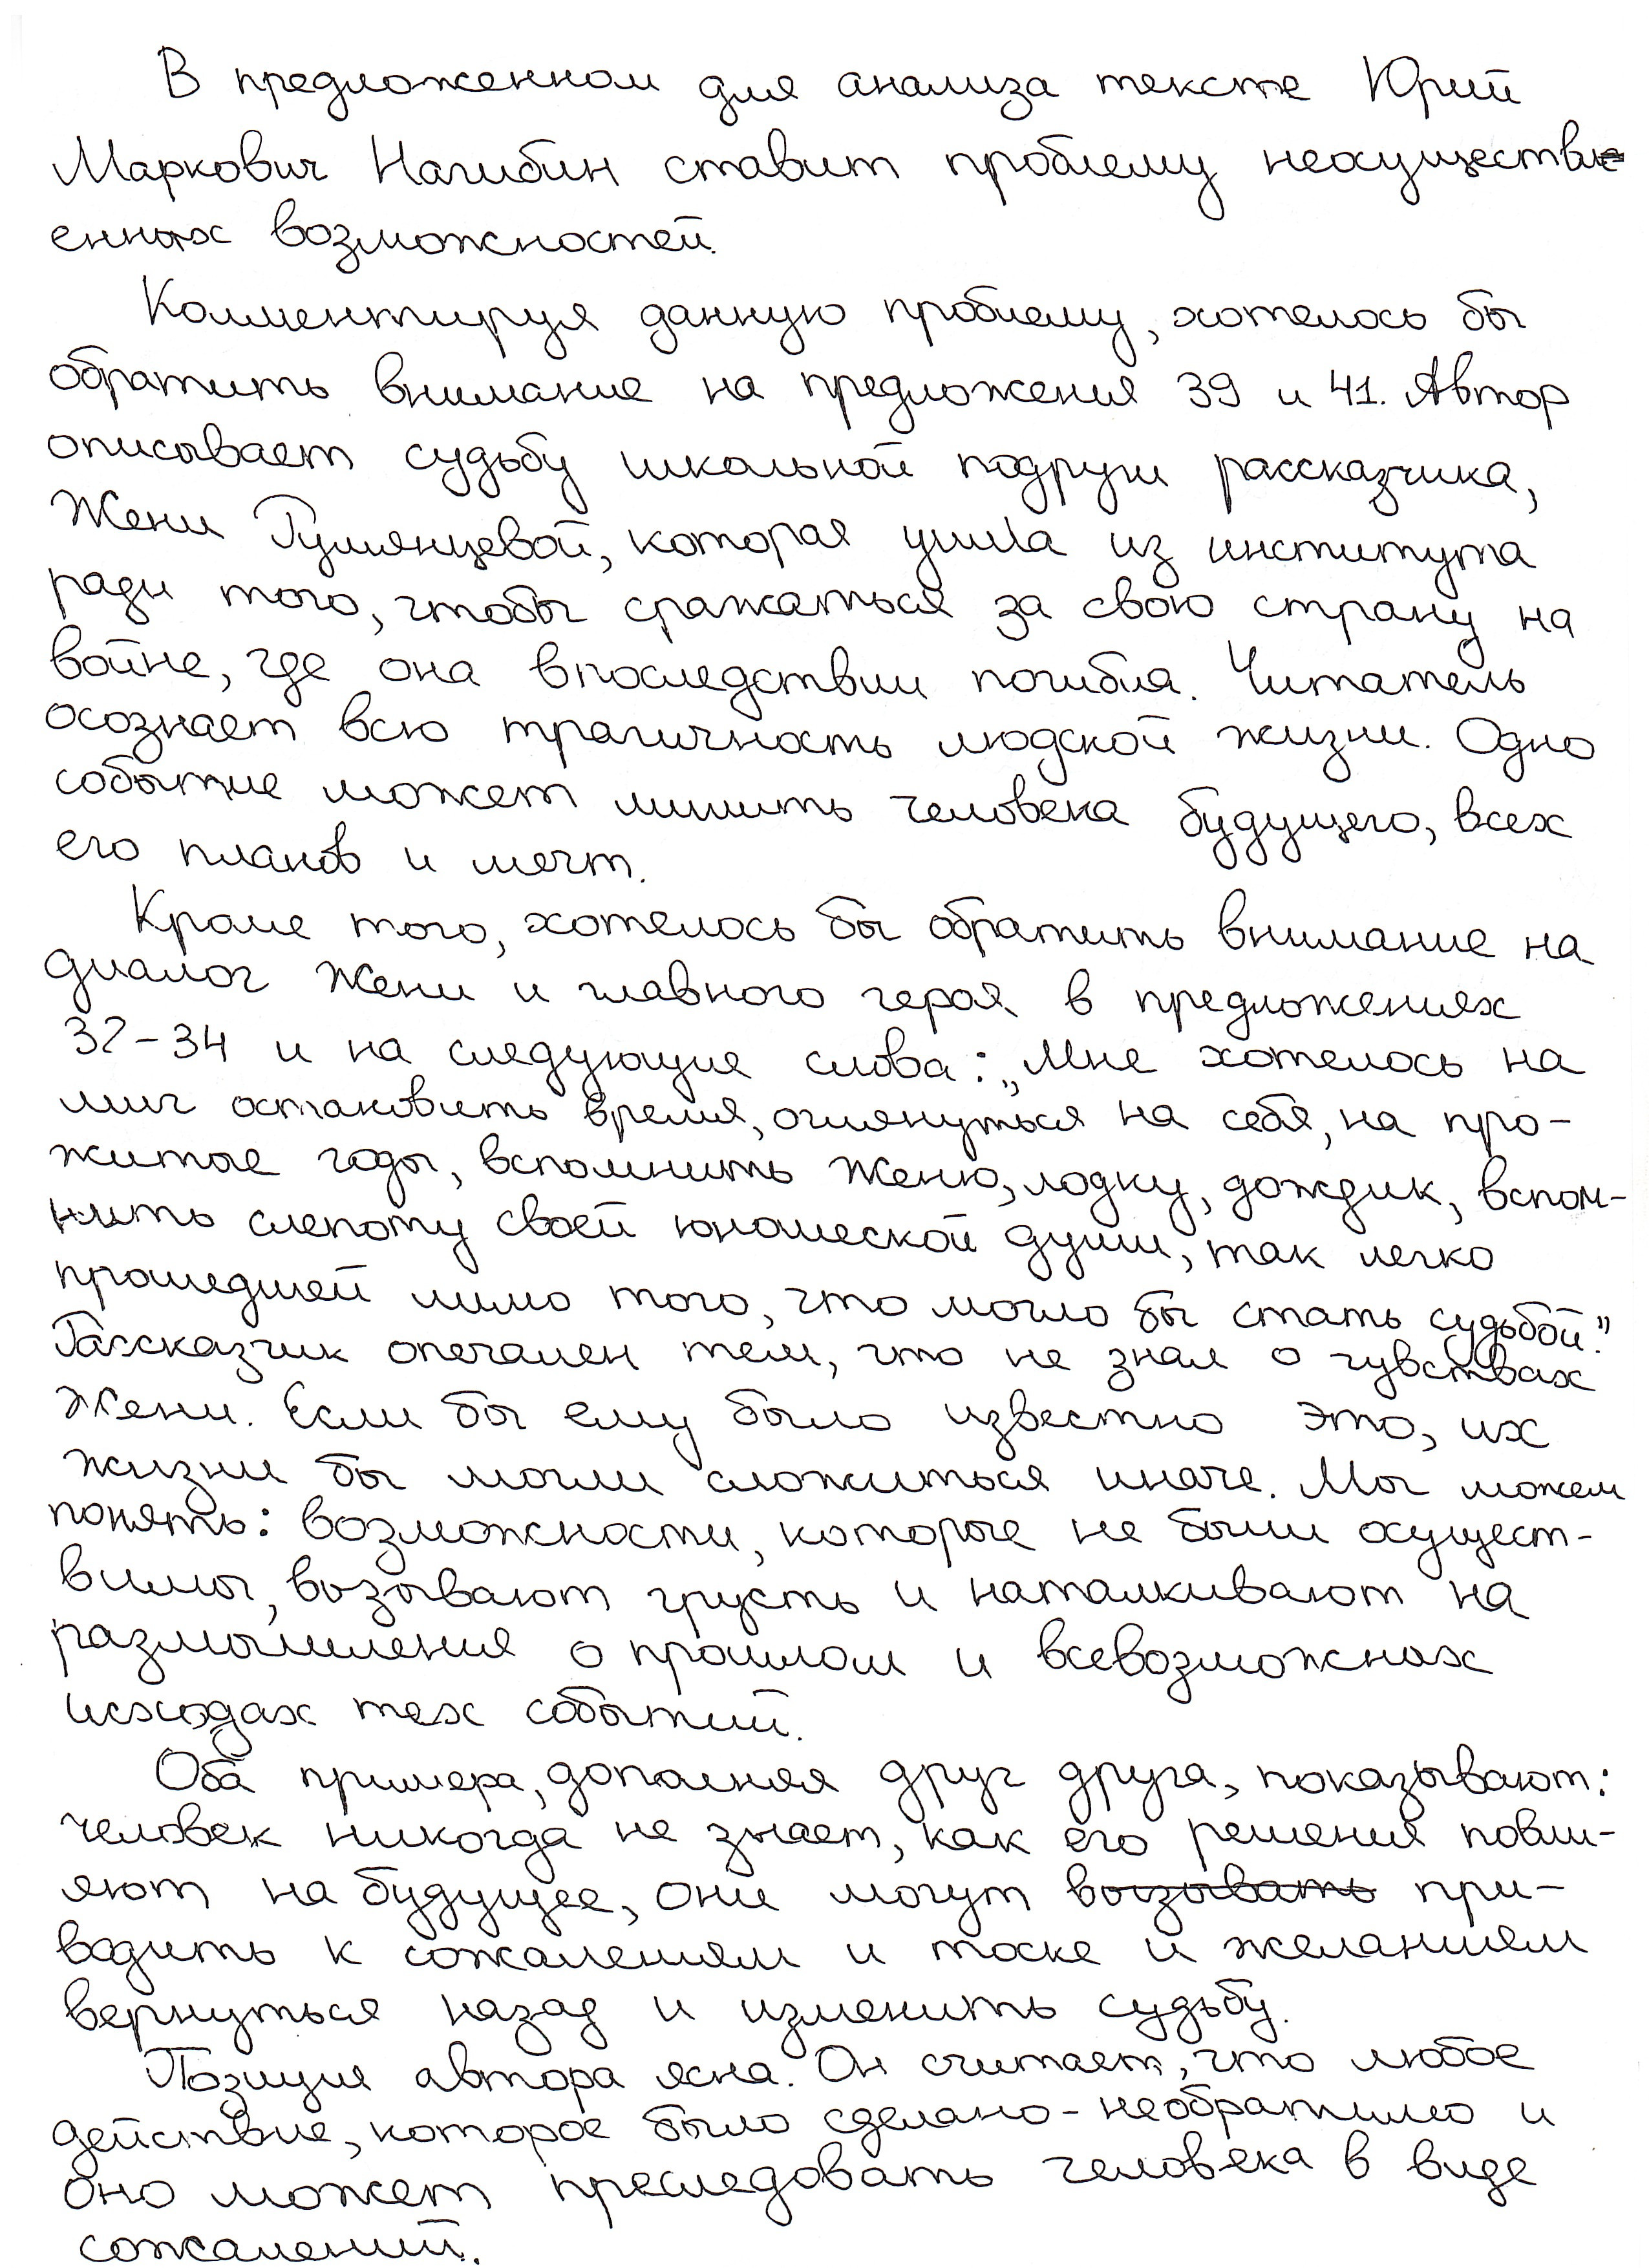 В предложенном для анализа тексте Юрий
Маркович Нагибин ставит проблему неосуществл
енных возможностей.
Комментируя данную проблему, хотелось бы
обратить внимание на предложения 39 и 41. Автор
описывает судьбу школьной подруги рассказчика,
Жени Румянцевой, которая ушла из института
ради того, чтобы сражаться за свою страну на
войне, где она впоследствии погибла. Читатель
осознает всю трагичность людской жизни. Одно
событие может лишить человека будущего, всех
его планов и мечт.
Кроме того, хотелось бы обратить внимание на
диалог Жени и главного героя в предложениях
32-34 и на следующие слова: „Мне хотелось на
миг остановить время, оглянуться на себя, на про-
житые годы, вспомнить Женю, лодку, дождик, вспом-
нить слепоту своей юношеской души, так легко
прошедшей мимо того, что могло бы стать судьбой."
Рассказчик опечален тем, что не знал о чувствах
Жени. Если бы ему было известно это, их
жизни бы могли сложиться иначе. Мы можем
понять: возможности, которые не были осущест-
вимы, вызывают грусть и наталкивают на
размышления о прошлом и всевозможных
исходах тех событий.
Оба примера, дополняя друг друга, показывают:
человек никогда не знает, как его решения повли-
яют на будущее, они могут вызывать при-
водить к сожалениям и тоске и желаниям
вернуться назад и изменить судьбу.
Позиция автора ясна. Он считает, что любое
действие, которое было сделано - необратимо и
оно может преследовать человека в виде
сожалений.